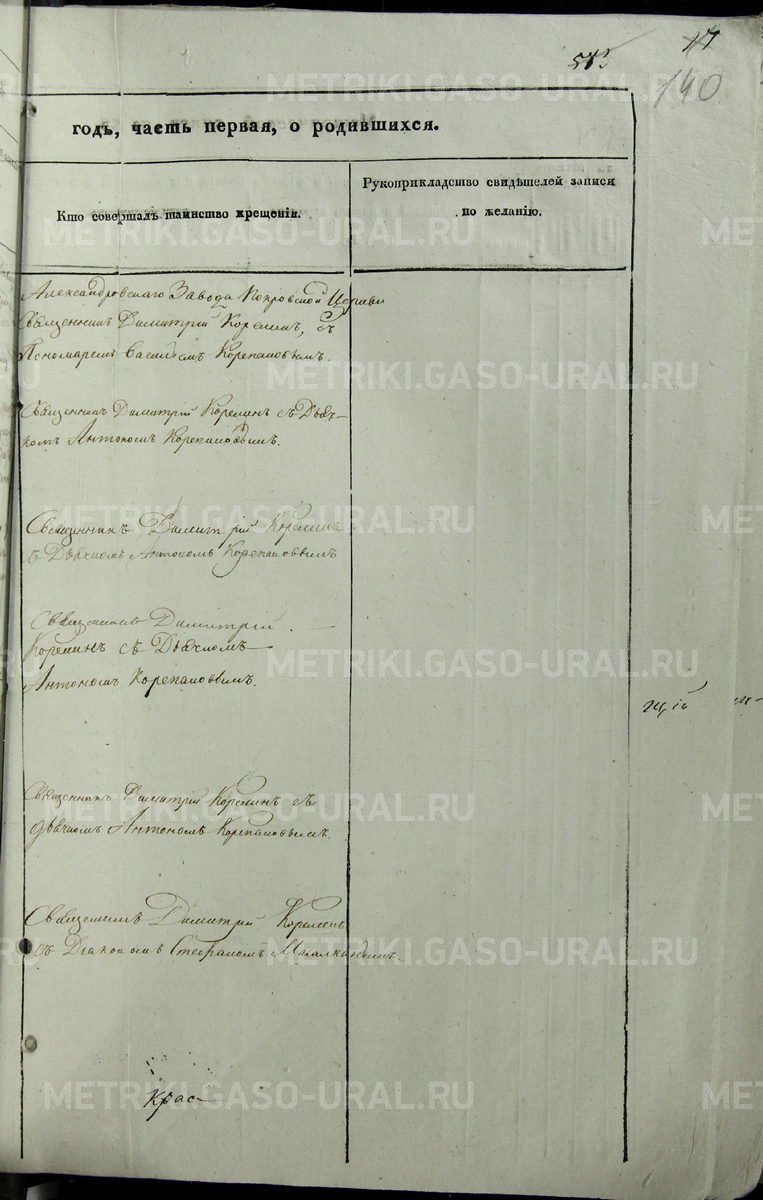 17
190
годъ, часть первая, о родившихся.
Кто совершалъ таинство крещенія.
Рукоприкладство свидѣтелей записи
по желанію.
Александровскаго Завода Покровской Церкви
Священникъ Димитрій Корелинъ, съ
Пономаремъ Васильемъ Корепановымъ.
Священникъ Димитрій Корелинъ съ Дьяч-
комъ Антономъ Корепановымъ.
Священникъ Димитрій Корелинъ
съ Дьячкомъ Антономъ Корепановымъ
Священникъ Димитрій
Корелинъ съ Дьячкомъ
Антономъ Корепановымъ.
щій
Священникъ Димитрій Корелинъ съ
дьячкомъ Антономъ Корепановымъ.
Священникъ Димитрій Корелинъ
съ Діакономъ Стефаномъ
Крас-
METRIKI.GASO-URAL.RU